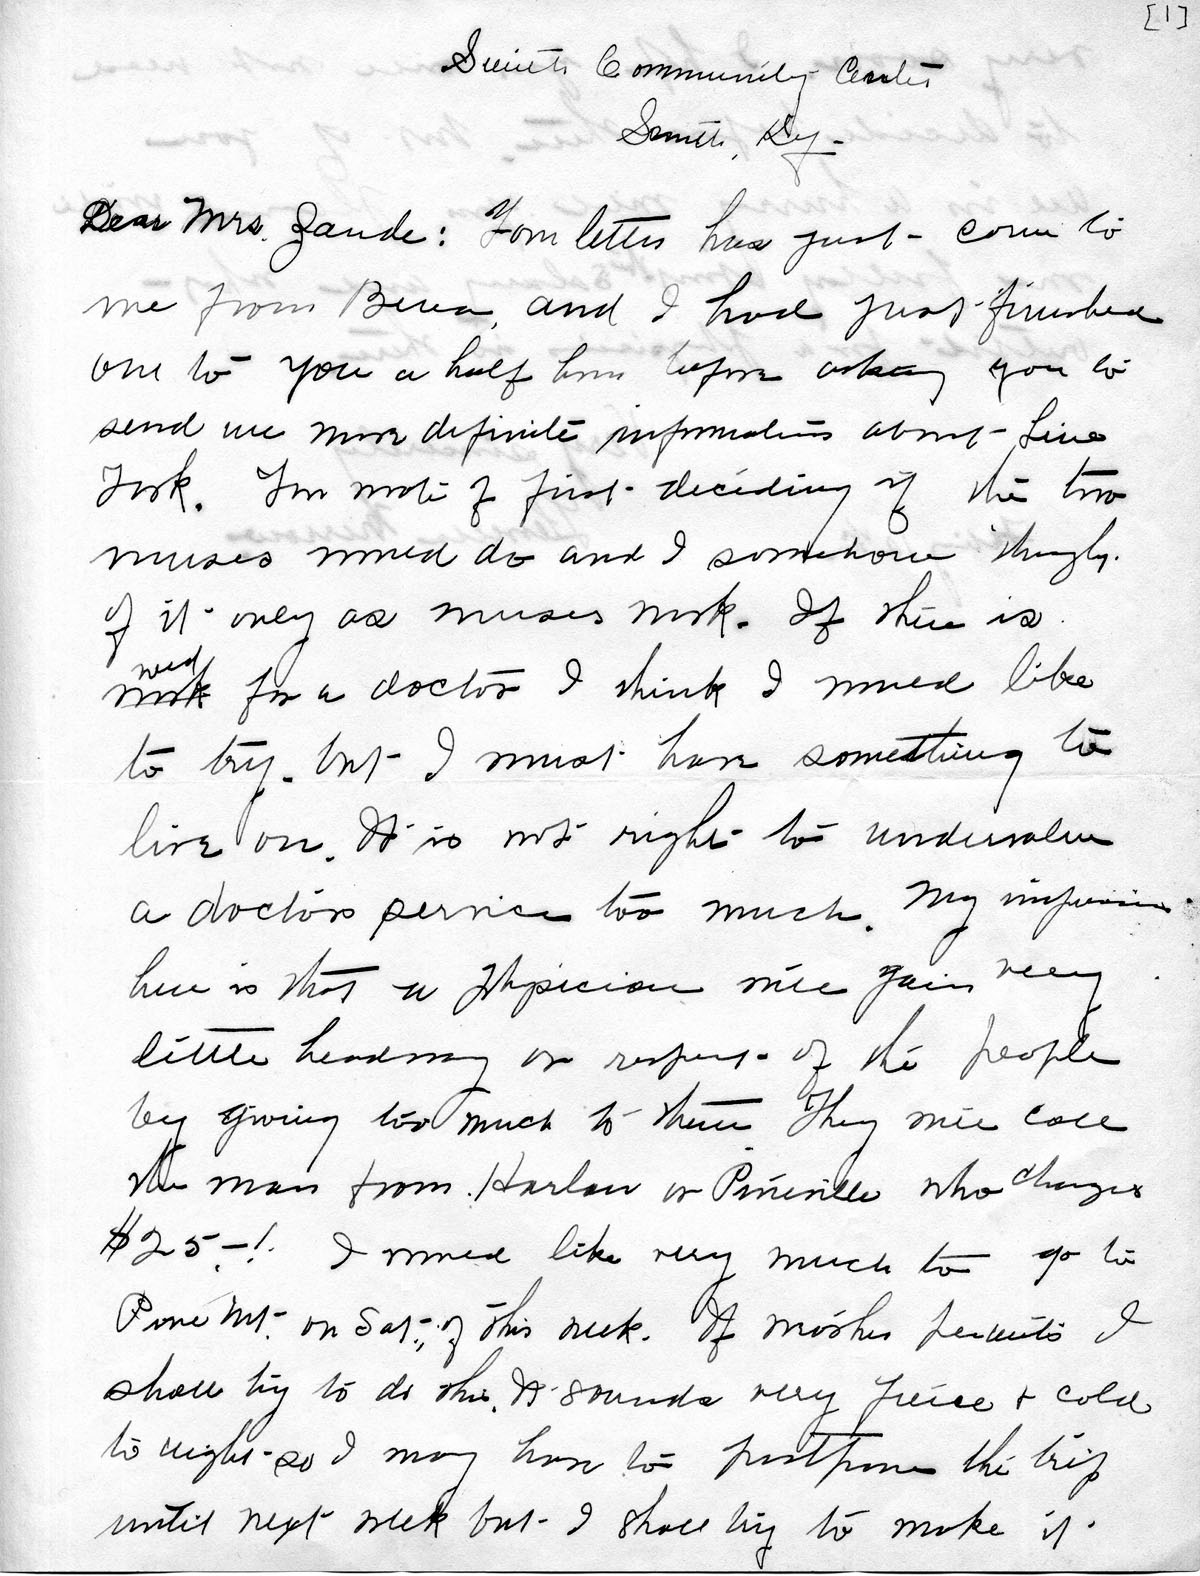 [1]
Smith Community Center
Smith, Ky-
Dear Mrs. Zande: Your letter has just- come to
me from Berea, and I had just finished
one to you a half hour before asking you to
send me more definite information about- Line
Fork. You wrote of first- deciding if the two
nurses would do and I somehow thought
of it- only as nurses work. If there is
work need for a doctor I think I would like
to try. but- I must- have something to
live on. It is not right- to undervalue
a doctors service too much. My impression
here is that a physician will gain very
little headway or respect- of the people
by giving too much to them. They will call
the man from Harlan or Pineville who charges
$25.-! I would like very much to go to
Pine Mt. on Sat., of this week. If weather permits I
shall try to do this. It sounds very fierce & cold
to night- so I may have to postpone the trip
until next week but- I shall try to make it-